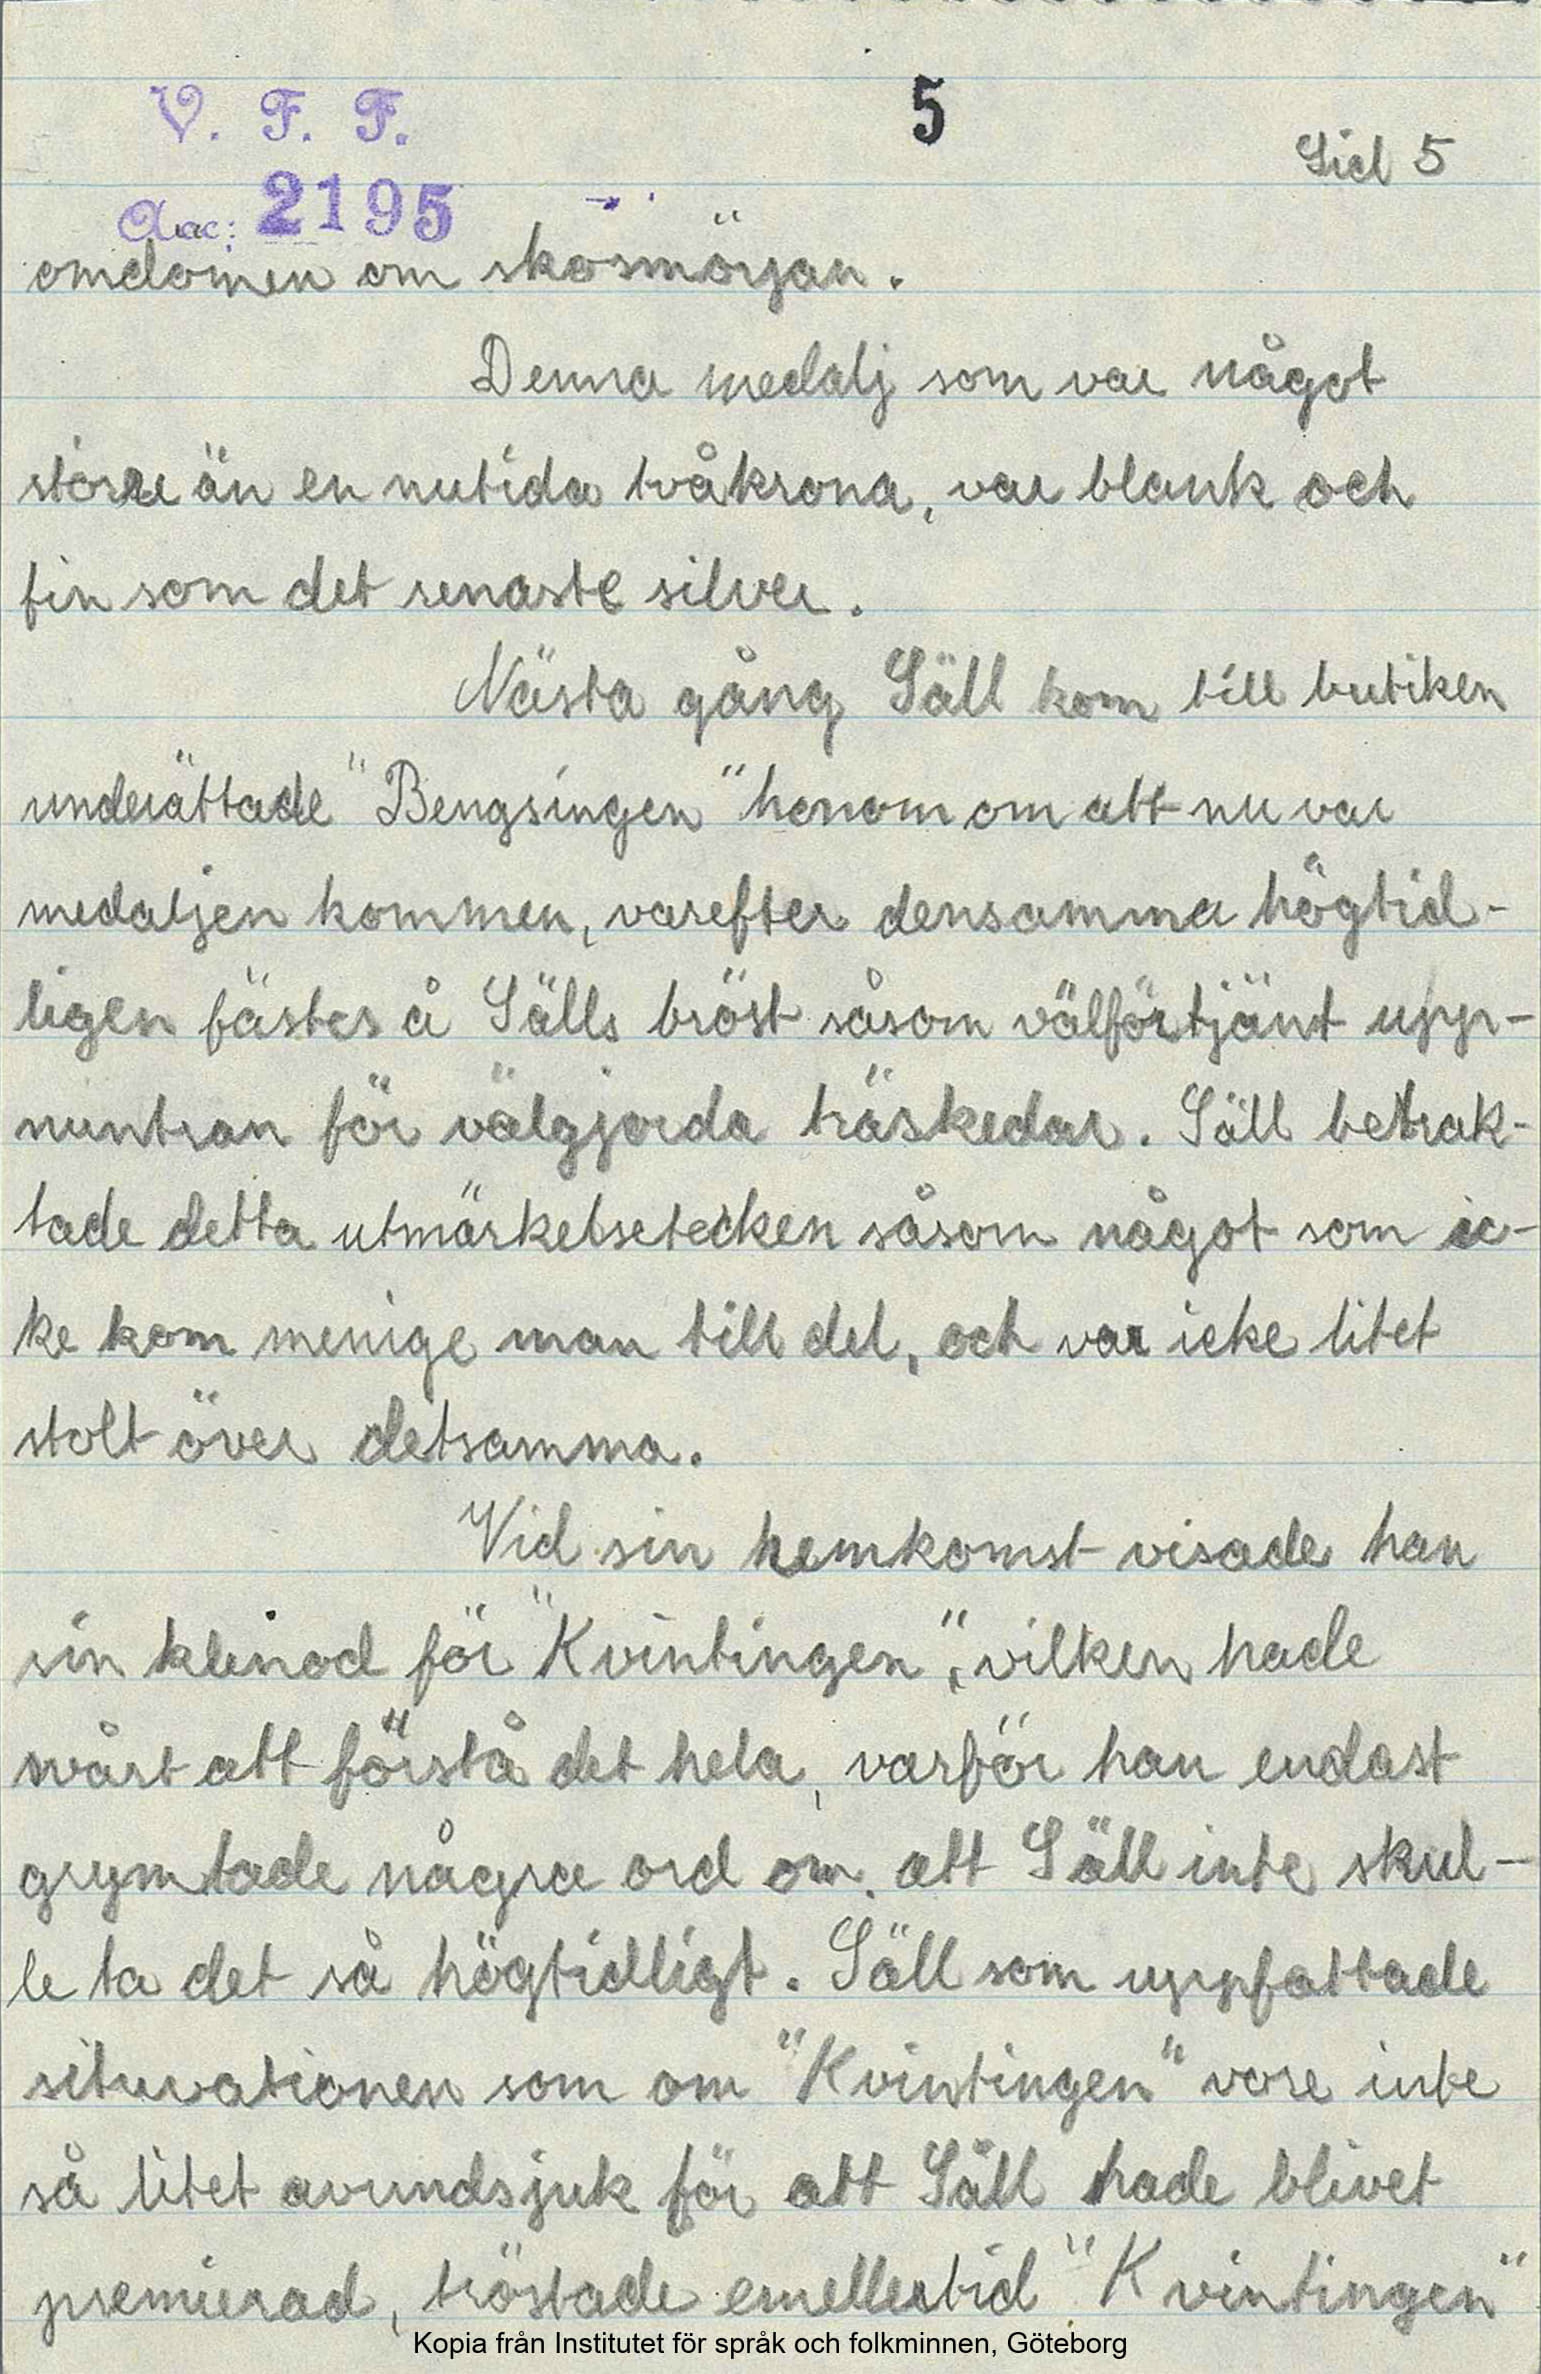 V. F. F.
5
Sid 5
Aac: 2195
omdömen om skosmörjan.
Denna medalj som var något
större än en nutida tvåkrona, var blank och
fin som det renaste silver.
Nästa gång Säll kom till butiken
underättade "Bengsingen" honom om att nu var
medaljen kommen, varefter densamma högtid-
ligen fästes å Sälls bröst såsom välförtjänt upp-
muntran för välgjorda träskedar. Säll betrak-
tade detta utmärkelsetecken såsom något som ic-
ke kom menige man till del, och var icke litet
stolt över detsamma.
Vid sin hemkomst visade han
sin klinod för "Kvintingen", vilken hade
svårt att förstå det hela, varför han endast
grymtade några ord om att Säll inte skul-
le ta det så högtidligt. Säll som uppfattade
situvationen som om "Kvintingen" vore inte
så litet avundsjuk för att Säll hade blivet
premierad, tröstade emellertid "Kvintingen"
Kopia från Institutet för språk och folkminnen, Göteborg